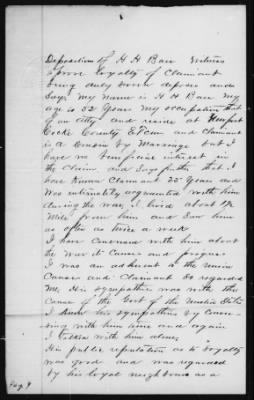 Deposition of H H Baer Witness
to prove loyalty of Claimant
being duly sworn deposes and
Says My name is H H Baer My
age is 52 years My occupation that
of an atty and reside at Newport
Cocke County E Tenn and Claimant
is a Cousin by Marriage but I
have no beneficial interest in
the Claim and Says further that I
have known Claimant 25 years and
was intimately acquainted with him
during the war, I lived about 1/2
Mile from him and Saw him
as often as twice a week
I have Conversed with him about
the War its Causes and progress
I was an adherent to the Union
Causes and Claimant So regarded
Me, His Sympathies was with the
Cause of the Govt of the United States
I know his Sympathies by Conver-
sing with him time and again
I talked with him alone,
His public reputation as to loyalty
was good and was regarded
by his loyal neighbours as a
Pag 9